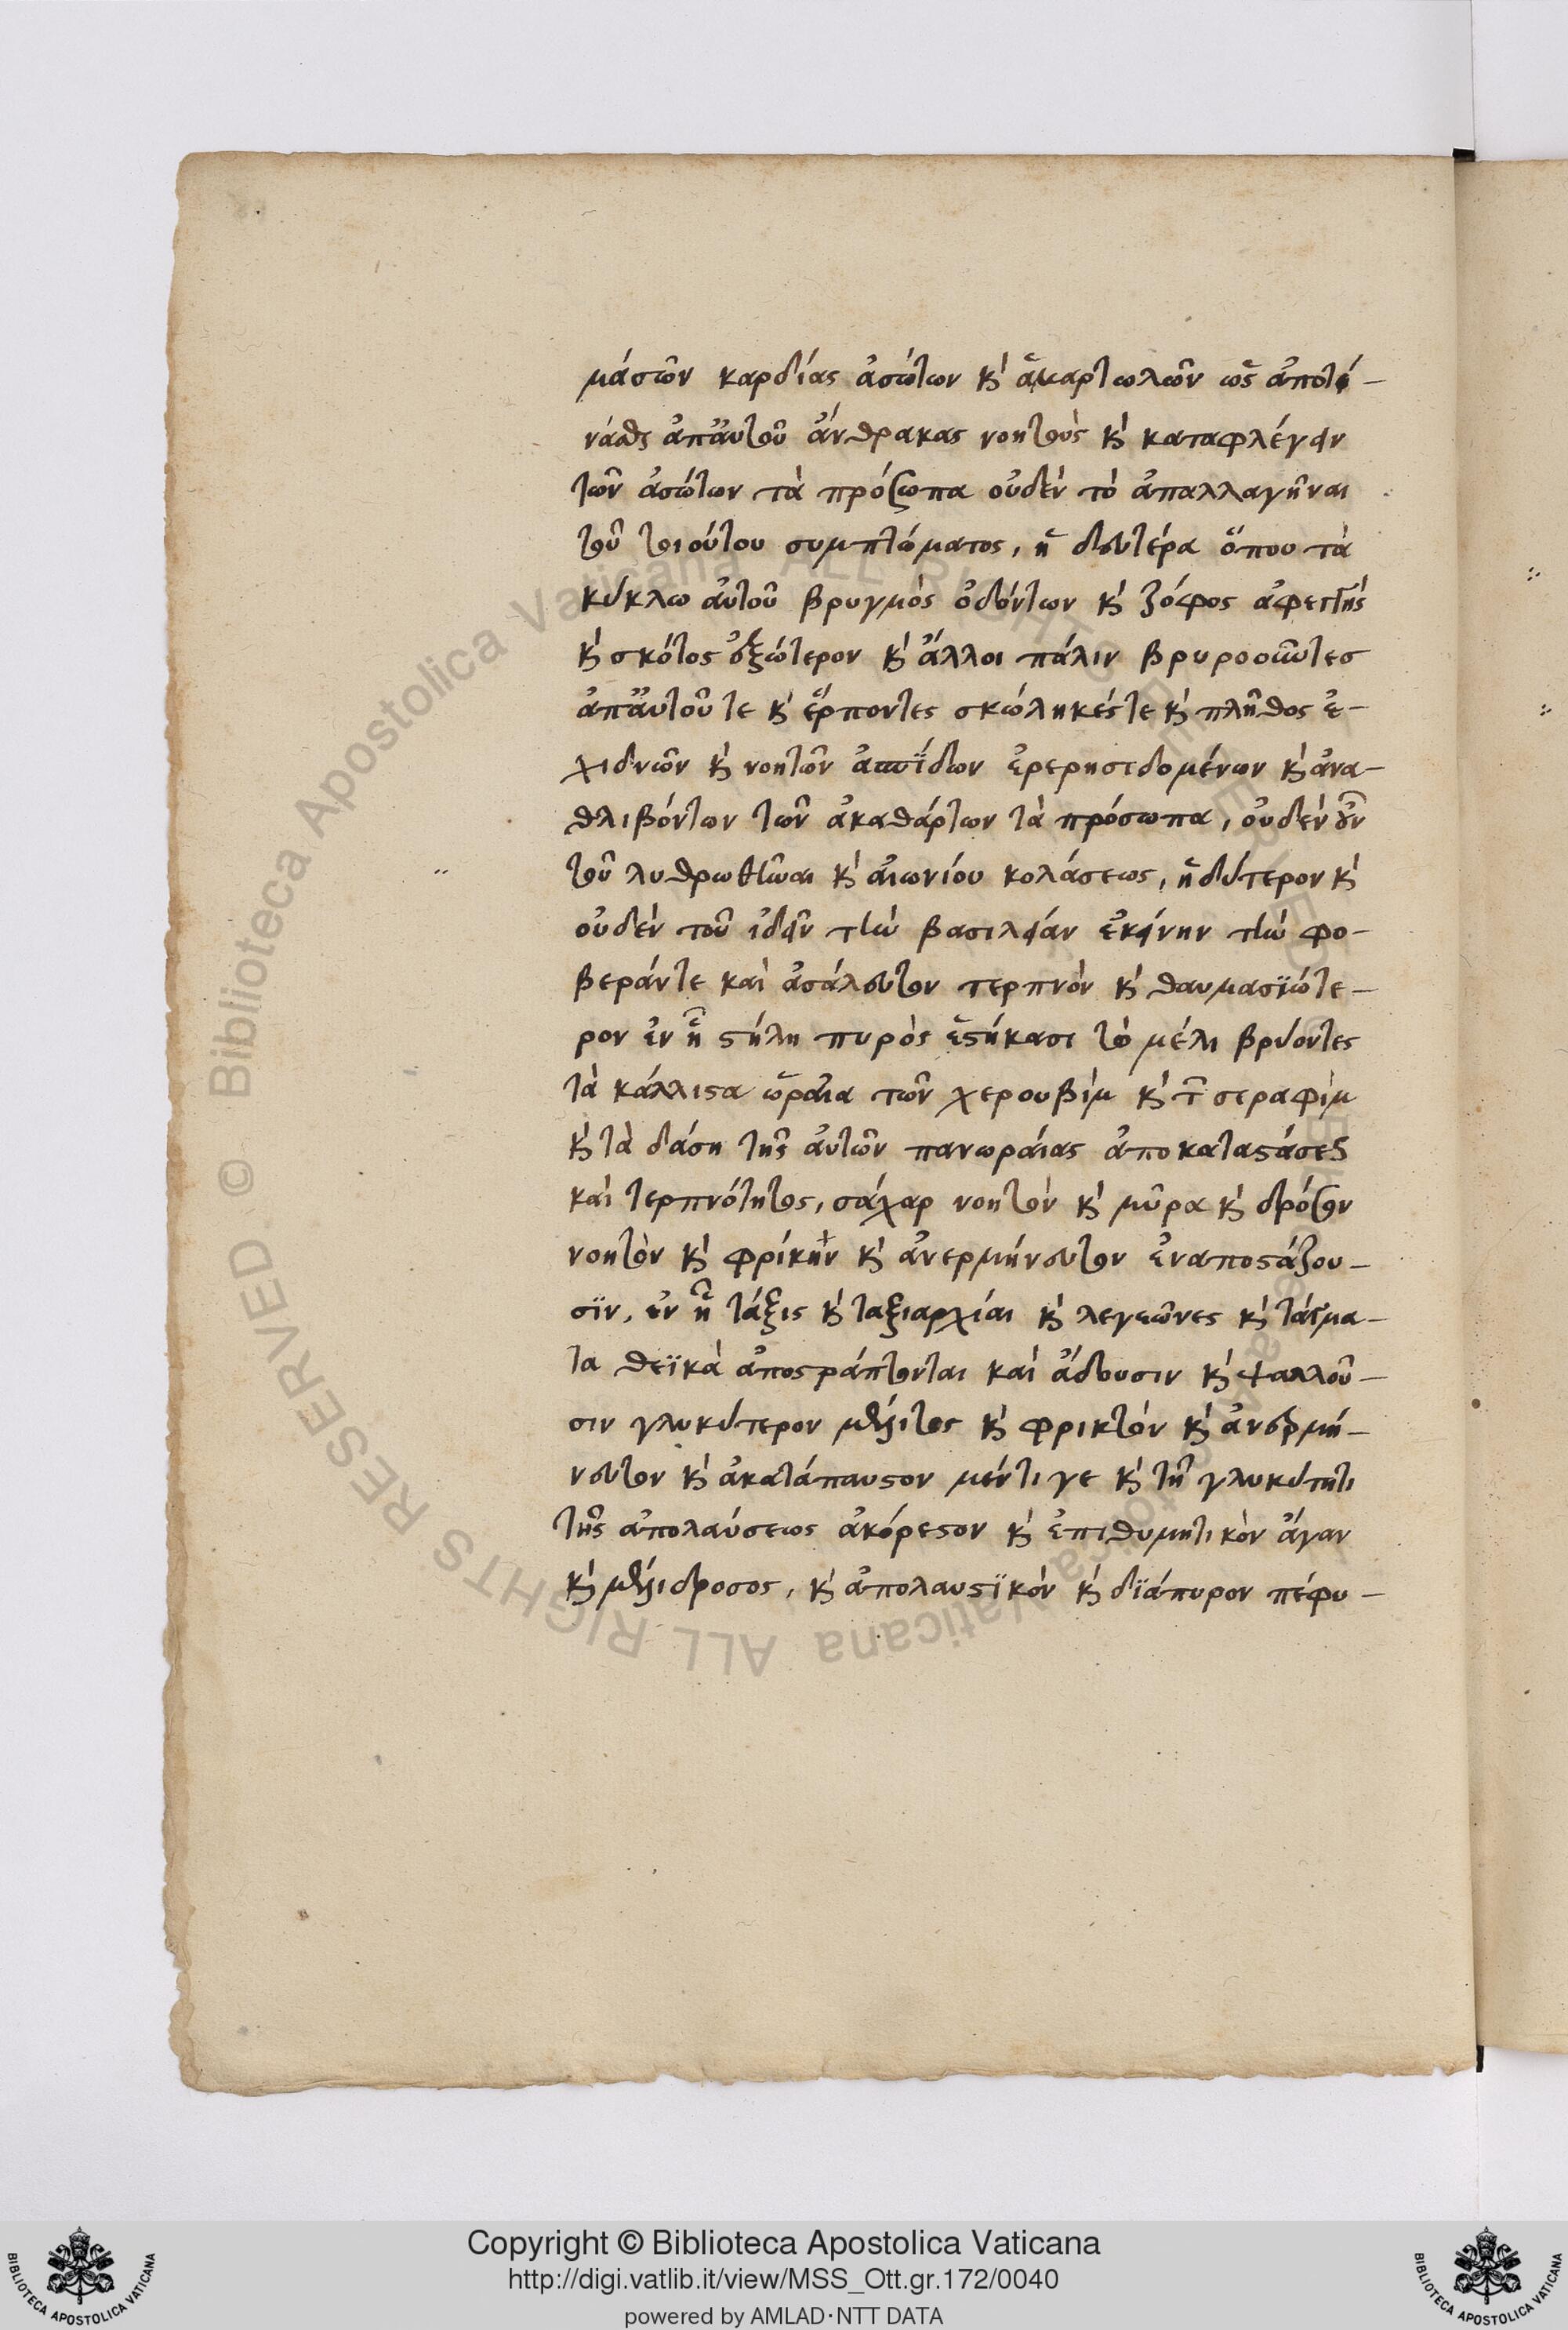 μάστων καρδίας ἀσώτων κὶ ἁμαρτωλῶν ὡς ἀποτι-
νάξς ἀπαὐτοῦ ἄνθρακας νοητοὺς κὶ καταφλέγειν
τῶν ἀσώτων τὰ πρόσωπα οὐδὲν τὸ ἀπαλλαγῆναι
τοῦ τοιούτου συμπτώματος, ἢ δευτέρα ὅπου τὰ
κύκλω αὐτοῦ βρυγμὸς ὀδόντων κὶ ζόφος ἀφεγγὴς
κὶ σκότος ἐξώτερον κὶ ἄλλοι πάλιν
ἀπαὐτοῦ τε κὶ ἕρποντες σκώληκές τε κὶ πλῆθος ἐ-
χιδνῶν κὶ νοητῶν ἀσπΐδων κὶ ἀνα-
θλιβόντων τῶν ἀκαθάρτων τὰ πρόσωπα, οὐδὲν οὖν
τοῦ λυθρωθῆναι κὶ αἰωνίου κολάσεως, ἢ δεύτερον κὶ
οὐδὲν τοῦ ἰδεῖν τὴν βασιλείαν ἐκείνην τὴν φο-
βεράν τε καὶ ἀσάλευτον τερπνὸν κὶ θαυμασϊώτε-
ρον ἐν ᾗ στήλη πυρὸς ἑστήκασι τὸ μέλι βρύοντες
τὰ κάλλιστα ὡραῖα τῶν χερουβὶμ κὶ τῶν σεραφὶμ
κὶ τὰ δάση τῆς αὐτῶν πανωραίας ἀποκαταστάσεως
καὶ τερπνότητος, σάχαρ νοητὸν κὶ μύρα κὶ δρόσον
νοητὸν κὶ φρίκην κὶ ἀνερμήνευτον ἐναποστάζου-
σϊν, ἐν ᾗ τάξις κὶ ταξιαρχίαι κὶ λεγεῶνες κὶ τάγμα-
τα θεϊκὰ ἀποστράπτονται καὶ ἄδουσιν κὶ ψαλλοῦ-
σιν γλυκύτερον μέλιτος κὶ φρικτὸν κὶ ἀνερμή-
νευτον κὶ ἀκατάπαυστον μέντι γε κὶ τῇ γλυκύτητι
τῆς ἀπολαύσεως ἀκόρεστον κὶ ἐπιθυμητικὸν ἄγαν
κὶ μελίδροσος, κὶ ἀπολαυστϊκὸν κὶ δϊάπυρον πέφυ-
Copyright © Biblioteca Apostolica Vaticana
http://digi.vatlib.it/view/MSS_Ott.gr.172/0040
powered by AMLAD·NTT DATA